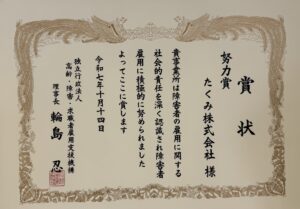 賞状
努力賞
たくみ株式会社 様
貴事業所は障害者の雇用に関する
社会的責任を深く認識され障害者
雇用に積極的に努められました
よってここに賞します
令和七年十月十四日
独立行政法人
高齢・障害・求職者雇用支援機構
理事長 輪島 忍